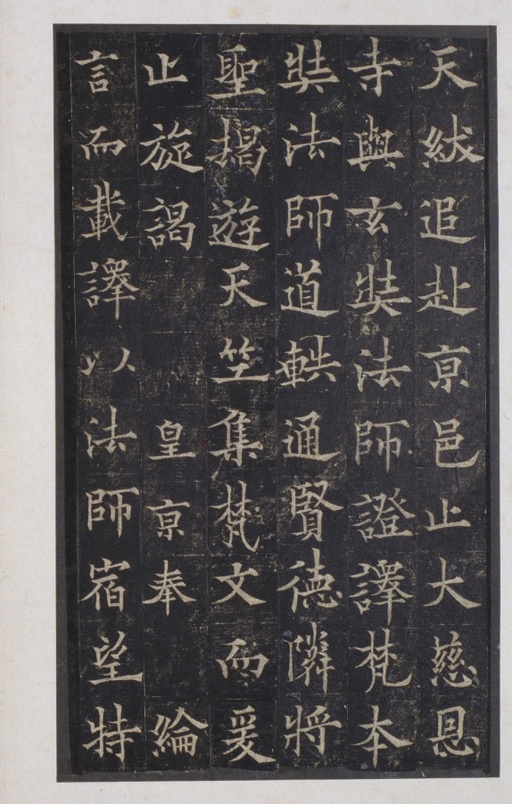 天紱追赴亰邑止大慈恩
寺與玄奘法師證譯梵本
奘法師道軼通賢德隣將
聖揭遊天竺集梵文而爰
止旋謁皇亰奉綸
言而載譯以法師宿望特